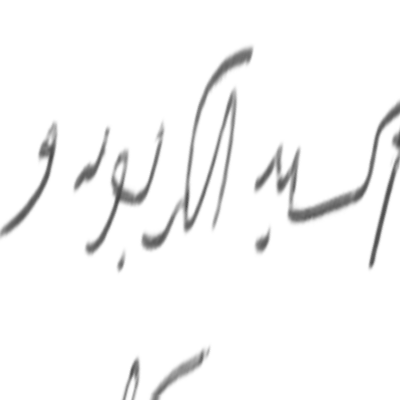 اكسيد الكربون و